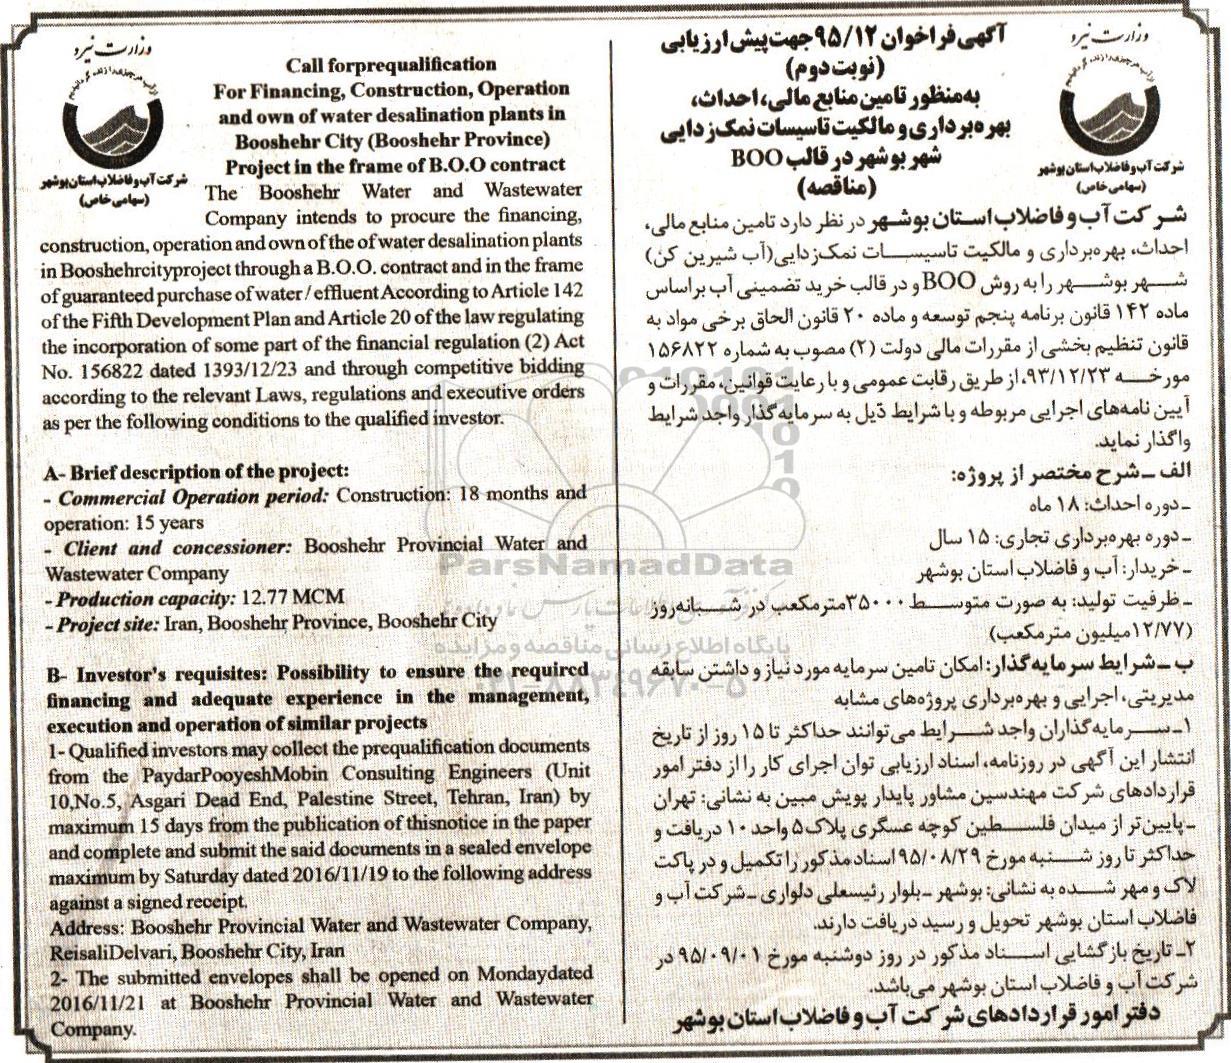 وزارت نیرو
شرکت آب و فاضلاب استان بوشهر
(سهامی خاص)
Call forprequalification
For Financing, Construction, Operation
and own of water desalination plants in
Booshehr City (Booshehr Province)
Project in the frame of B.O.O contract
The Booshehr Water and Wastewater
Company intends to procure the financing,
construction, operation and own of the of water desalination plants
in Booshehrcityproject through a B.O.O. contract and in the frame
of guaranteed purchase of water / effluent According to Article 142
of the Fifth Development Plan and Article 20 of the law regulating
the incorporation of some part of the financial regulation (2) Act
No. 156822 dated 1393/12/23 and through competitive bidding
according to the relevant Laws, regulations and executive orders
as per the following conditions to the qualified investor.
A- Brief description of the project:
- Commercial Operation period: Construction: 18 months and
operation: 15 years
- Client and concessioner: Booshehr Provincial Water and
Wastewater Company
- Production capacity: 12.77 MCM
- Project site: Iran, Booshehr Province, Booshehr City
B- Investor's requisites: Possibility to ensure the required
financing and adequate experience in the management,
execution and operation of similar projects
1- Qualified investors may collect the prequalification documents
from the PaydarPooyeshMobin Consulting Engineers (Unit
10,No.5, Asgari Dead End, Palestine Street, Tehran, Iran) by
maximum 15 days from the publication of thisnotice in the paper
and complete and submit the said documents in a sealed envelope
maximum by Saturday dated 2016/11/19 to the following address
against a signed receipt.
Address: Booshehr Provincial Water and Wastewater Company,
ReisaliDelvari, Booshehr City, Iran
2- The submitted envelopes shall be opened on Mondaydated
2016/11/21 at Booshehr Provincial Water and Wastewater
Company.
وزارت نیرو
شرکت آب و فاضلاب استان بوشهر
(سهامی خاص)
آگهی فراخوان ۹۵/۱۲ جهت پیش ارزیابی
(نوبت دوم)
به‌منظور تامین منابع مالی، احداث،
بهره‌برداری و مالکیت تاسیسات نمک‌زدایی
شهر بوشهر در قالب BOO
(مناقصه)
شرکت آب و فاضلاب استان بوشهر در نظر دارد تامین منابع مالی،
احداث، بهره‌برداری و مالکیت تاسیسات نمک‌زدایی(آب شیرین کن)
شهر بوشهر را به روش BOO و در قالب خرید تضمینی آب براساس
ماده ۱۴۲ قانون برنامه پنجم توسعه و ماده ۲۰ قانون الحاق برخی مواد به
قانون تنظیم بخشی از مقررات مالی دولت (۲) مصوب به شماره ۱۵۶۸۲۲
مورخه ۹۳/۱۲/۲۳، از طریق رقابت عمومی و با رعایت قوانین، مقررات و
آیین نامه‌های اجرایی مربوطه و با شرایط ذیل به سرمایه‌گذار واجد شرایط
واگذار نماید.
الف ـ شرح مختصر از پروژه:
ـ دوره احداث: ۱۸ ماه
ـ دوره بهره‌برداری تجاری: ۱۵ سال
ـ خریدار: آب و فاضلاب استان بوشهر
ـ ظرفیت تولید: به صورت متوسط ۳۵۰۰۰مترمکعب در شبانه‌روز
(۱۲/۷۷میلیون مترمکعب)
ب ـ شرایط سرمایه‌گذار: امکان تامین سرمایه مورد نیاز و داشتن سابقه
مدیریتی، اجرایی و بهره‌برداری پروژه‌های مشابه
۱ـ سرمایه‌گذاران واجد شرایط می‌توانند حداکثر تا ۱۵ روز از تاریخ
انتشار این آگهی در روزنامه، اسناد ارزیابی توان اجرای کار را از دفتر امور
قراردادهای شرکت مهندسین مشاور پایدار پویش مبین به نشانی: تهران
ـ پایین‌تر از میدان فلسطین کوچه عسگری پلاک۵ واحد ۱۰ دریافت و
حداکثر تا روز شنبه مورخ ۹۵/۰۸/۲۹ اسناد مذکور را تکمیل و در پاکت
لاک و مهر شده به نشانی: بوشهر ـ بلوار رئیسعلی دلواری ـ شرکت آب و
فاضلاب استان بوشهر تحویل و رسید دریافت دارند.
۲ـ تاریخ بازگشایی اسناد مذکور در روز دوشنبه مورخ ۹۵/۰۹/۰۱ در
شرکت آب و فاضلاب استان بوشهر می‌باشد.
دفتر امور قراردادهای شرکت آب و فاضلاب استان بوشهر
ParsNamadData
پایگاه اطلاع رسانی مناقصه و مزایده
۰۲۱-۸۸۳۴۹۶۷۰-۵